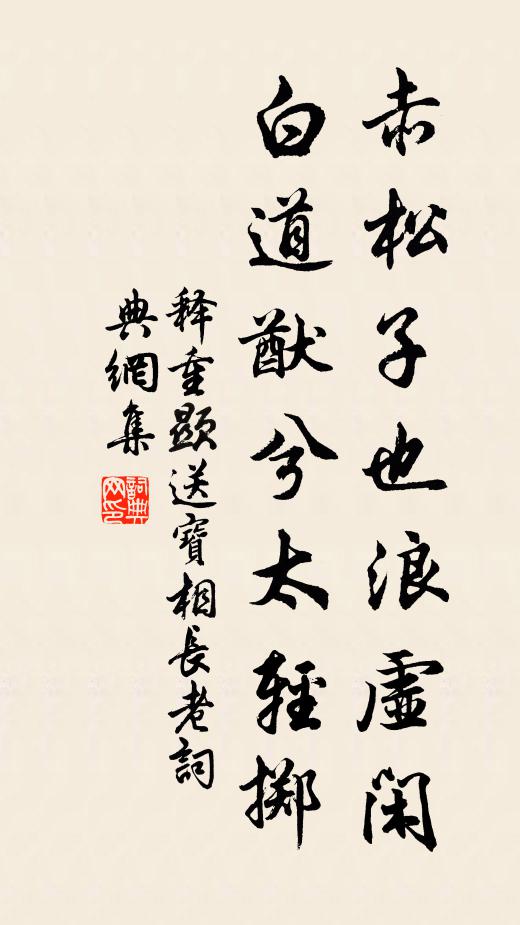 赤松子也浪虛閑
白道猷兮太輕擲
释重顯送寶相長老詞
典網集
詞典网印